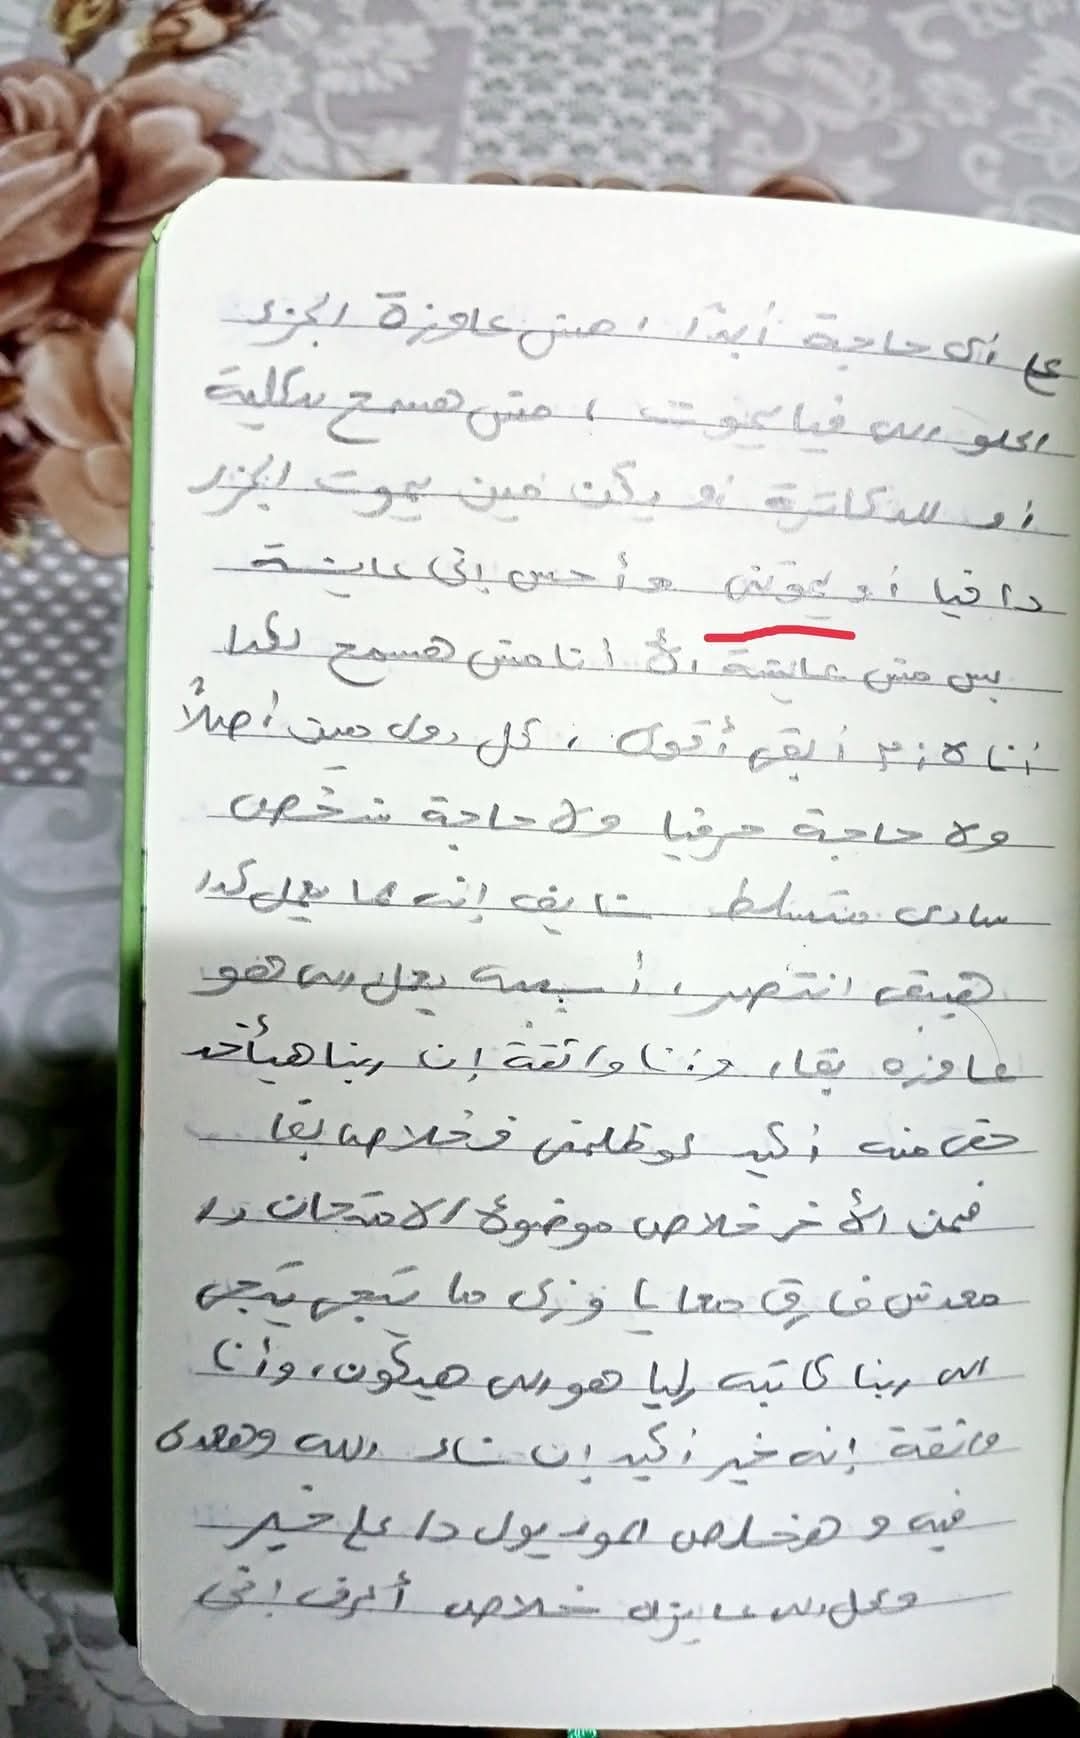 ع أى حاجة أبدًا، مش عاوزة الجزء
الحلو اللى فيا يموت، مش هسمح لكلية
أو للدكاترة أو يكن مين يموت الجزء
دا فيا أو يموتنى وأحس إنى عايشة
بس مش عايشة لأ أنا مش هسمح لكدا
أنا لازم أبقى أقوى، كل دول مين أصلاً
ولا حاجة حرفيا ولا حاجة شخص
سادى متسلط شايف إنه لما يعمل كدا
هيبقى انتصر، أسيبه يعمل اللى هو
عاوزه بقا، وأنا واثقة إن ربنا هيأخد
حقى منه أكيد لو ظلمنى فخلاص بقا
فمن الأخر خلاص موضوع الامتحان دا
معدش فارق معايا وزى ما تيجى تيجى
اللى ربنا كاتبه ليا هو اللى هيكون، وأنا
واثقة إنه خير أكيد إن شاء الله وهعدى
فيه وهخلص الموديول دا على خير
وكل اللى عايزاه خلاص أعرف إنى